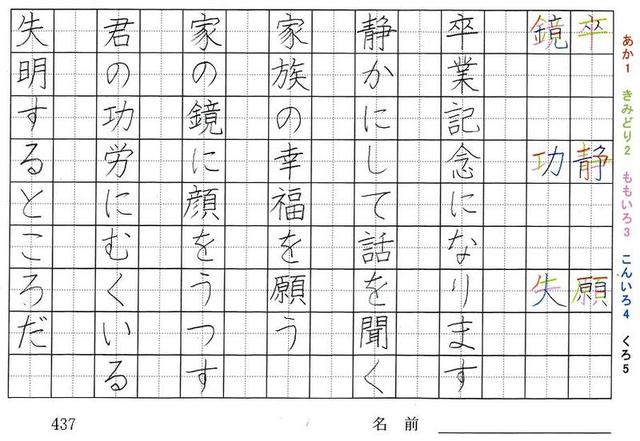 あか1 きみどり2 ももいろ3 こんいろ4 くろ5
卒 静 願
鏡 功 失
卒業記念になります
静かにして話を聞く
家族の幸福を願う
家の鏡に顔をうつす
君の功労にむくいる
失明するところだ
437 名前